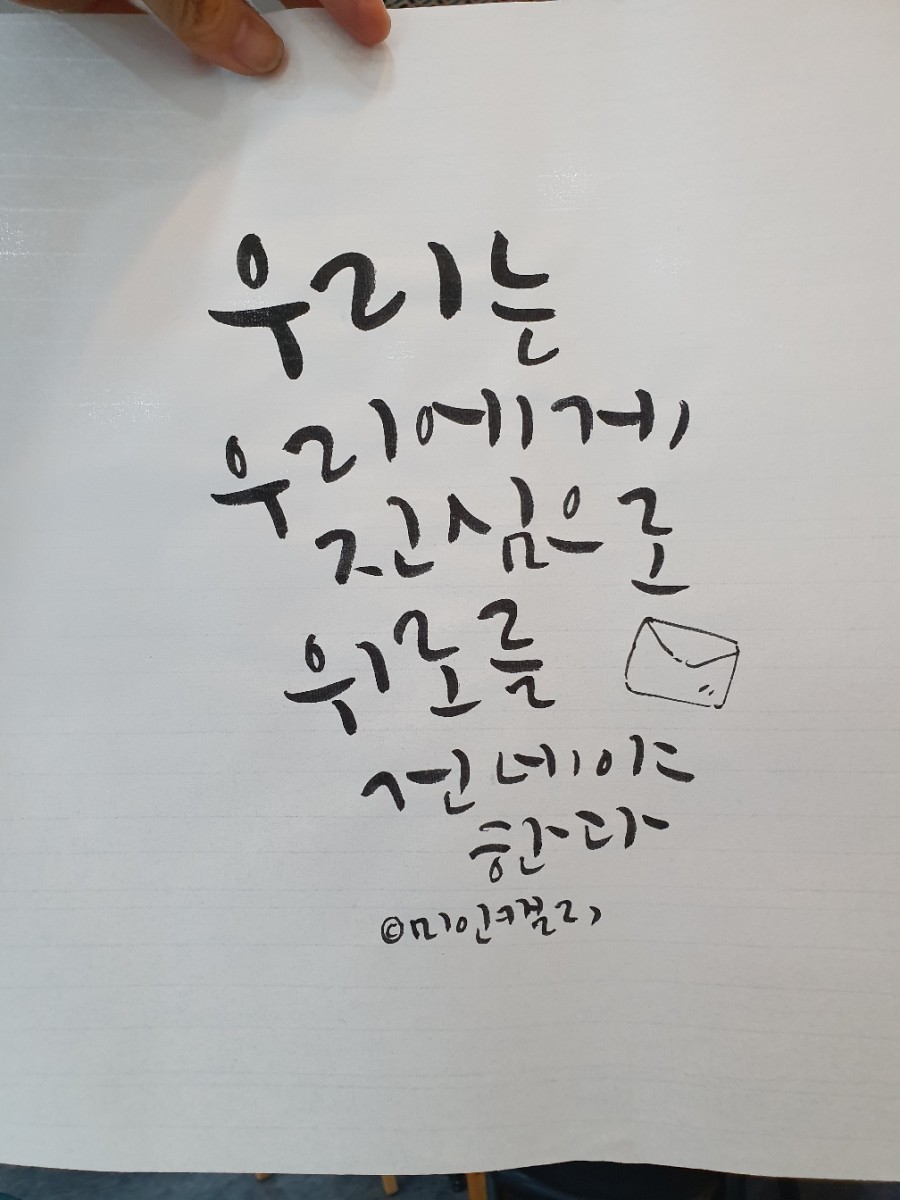 우리는
우리에게
진심으로
위로를
건네야
한다
©미인캘리